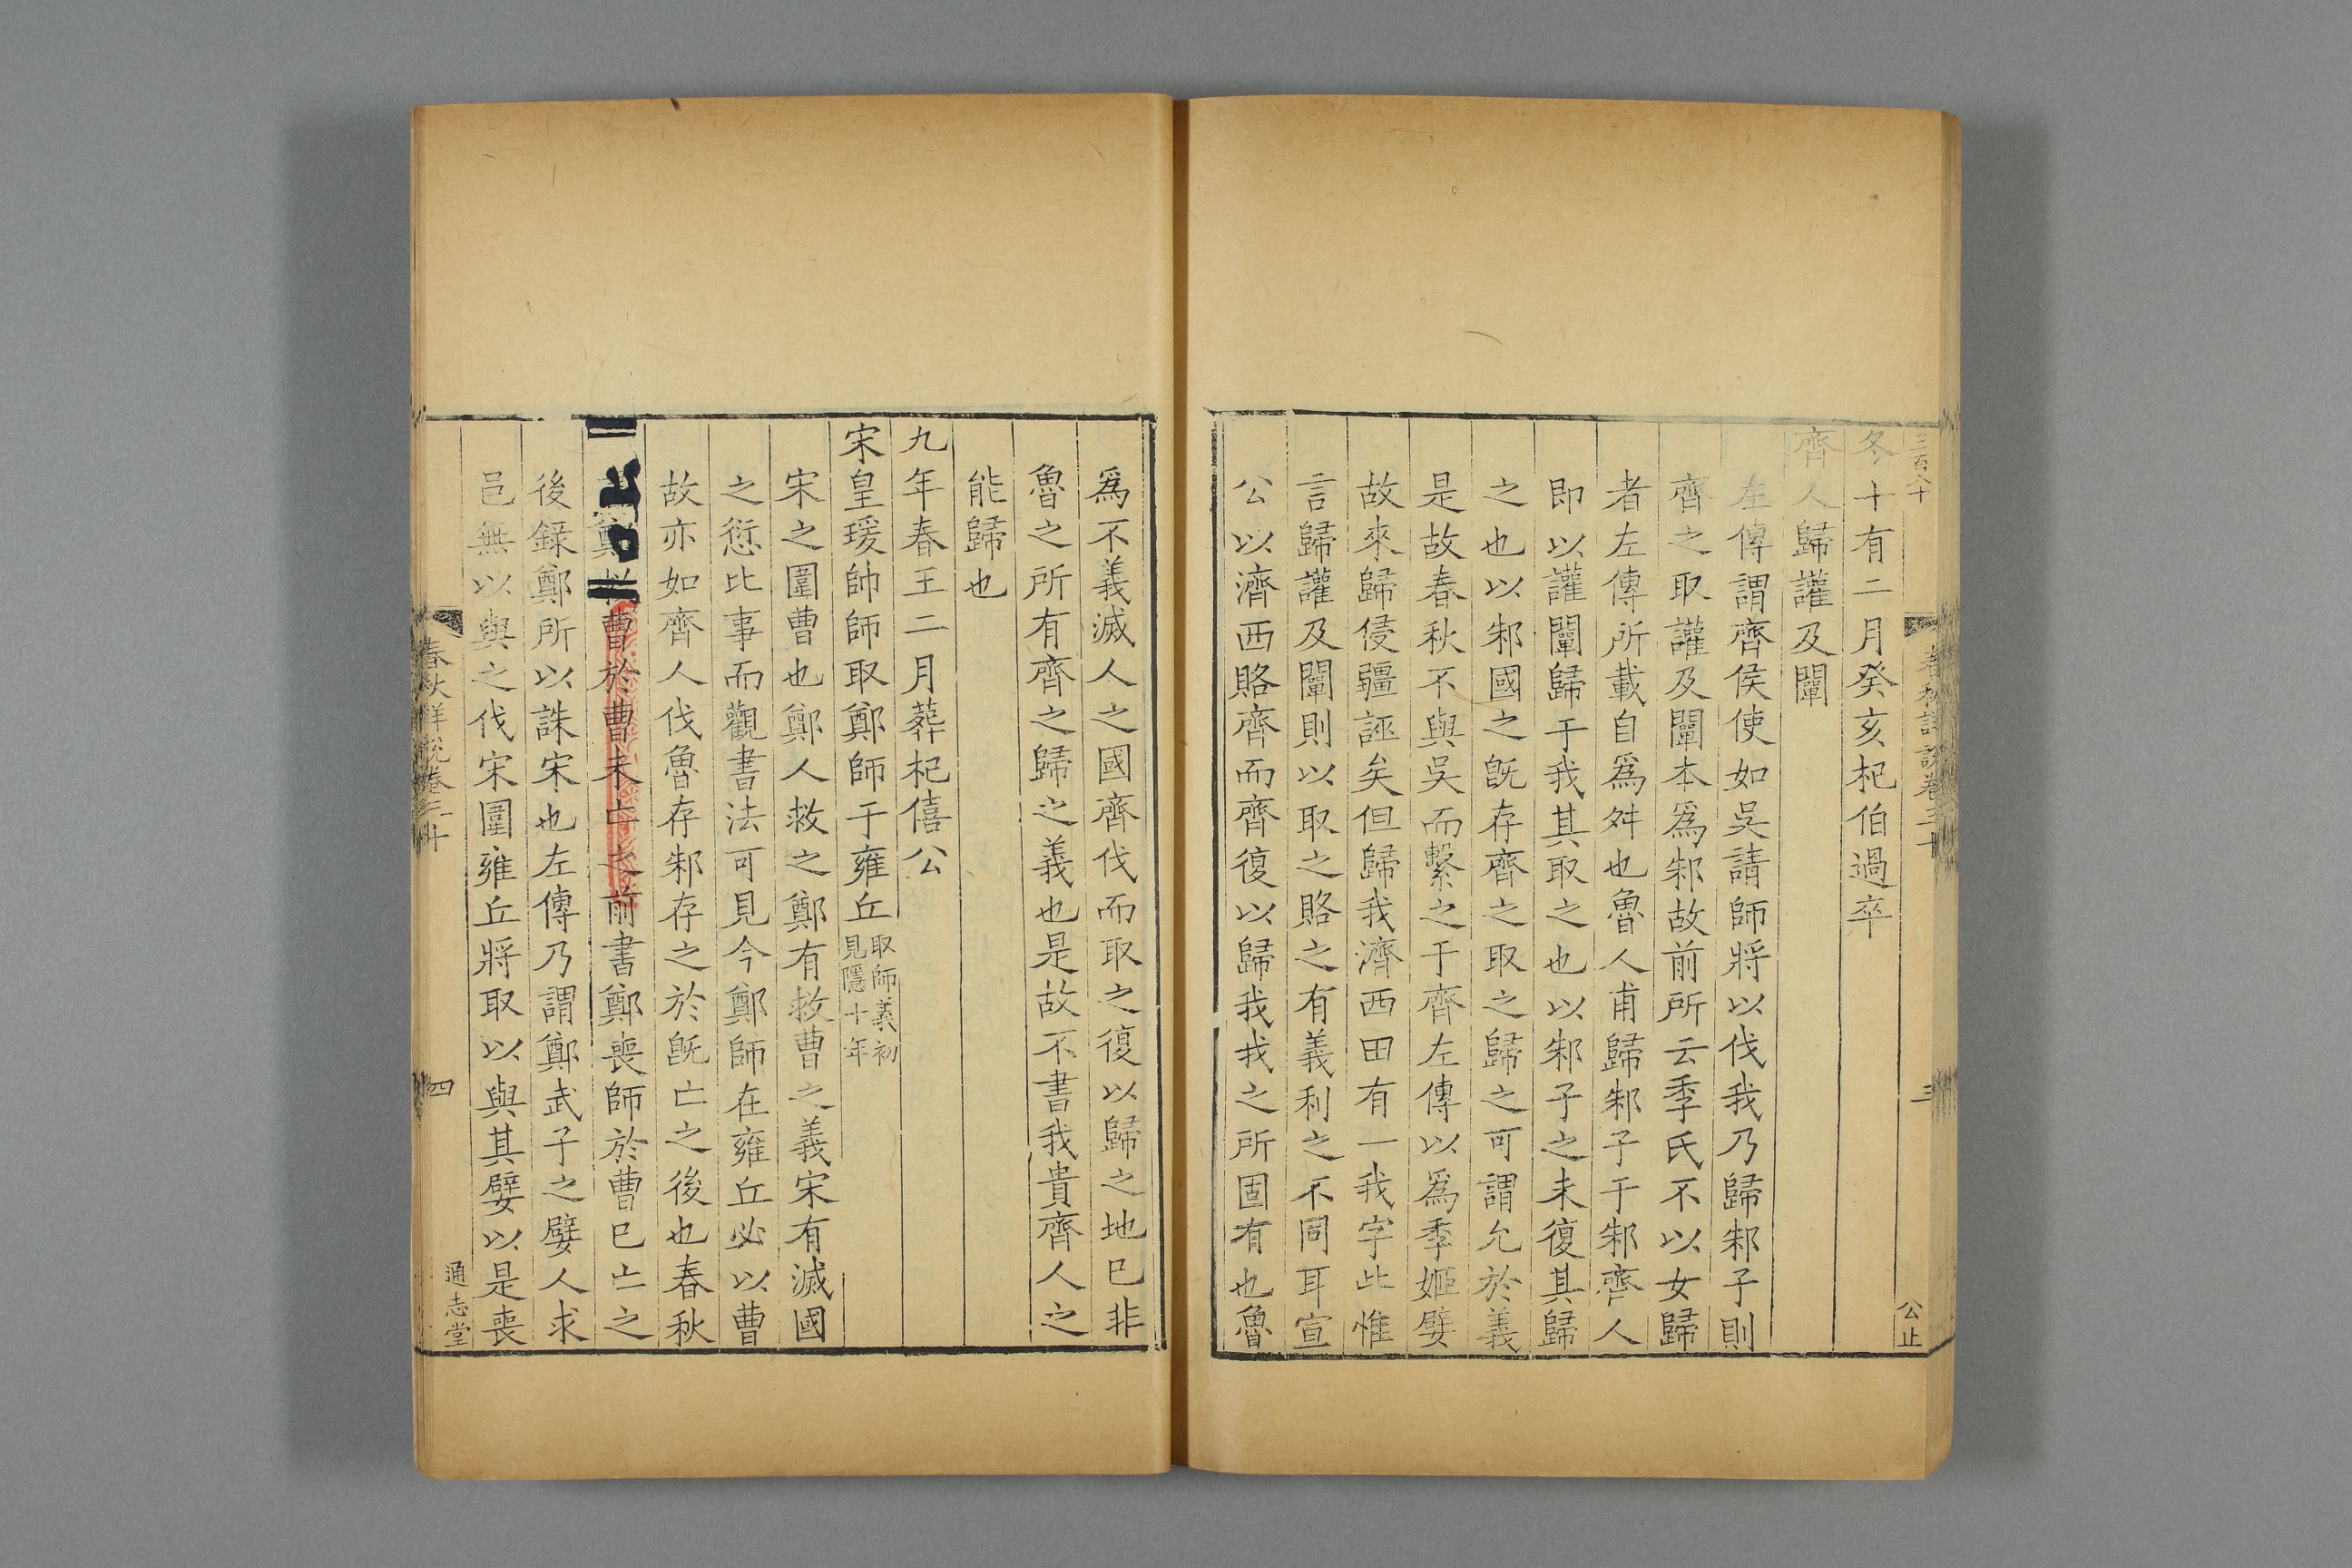 三百八十
春秋詳說卷三十
三
公止
冬十有二月癸亥杞伯過卒
齊人歸讙及闡
左傳謂齊侯使如吳請師將以伐我乃歸邾子則
齊之取讙及闡本爲邾故前所云季氏不以女歸
者左傳所載自爲舛也魯人甫歸邾子于邾齊人
即以讙闡歸于我其取之也以邾子之未復其歸
之也以邾國之旣存齊之取之歸之可謂允於義
是故春秋不與吳而繫之于齊左傳以爲季姬嬖
故來歸侵疆誣矣但歸我濟西田有一我字此惟
言歸讙及闡則以取之賂之有義利之不同耳宣
公以濟西賂齊而齊復以歸我我之所固有也魯
爲不義滅人之國齊伐而取之復以歸之地已非
魯之所有齊之歸之義也是故不書我貴齊人之
能歸也
九年春王二月葬杞僖公
宋皇瑗帥師取鄭師于雍丘取師義初
見隱十年
宋之圍曹也鄭人救之鄭有救曹之義宋有滅國
之愆比事而觀書法可見今鄭師在雍丘必以曹
故亦如齊人伐魯存邾存之於旣亡之後也春秋
鄭救曹於曹未亡之前書鄭喪師於曹已亡之
後錄鄭所以誅宋也左傳乃謂鄭武子之嬖人求
邑無以與之伐宋圍雍丘將取以與其嬖以是喪
春秋詳說卷三十
四
通志堂